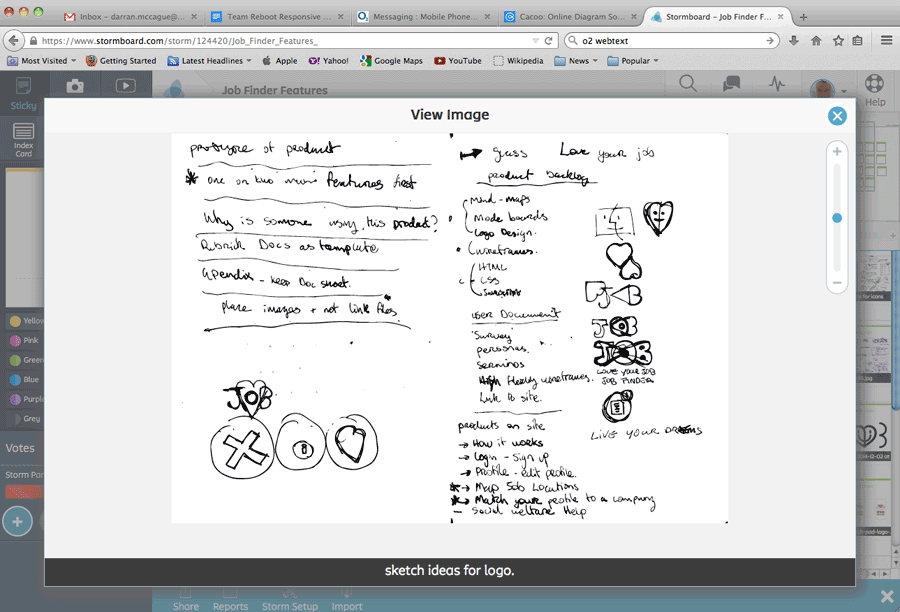 Inbox - darran.mccague@...
Team Reboot Responsive ...
Messaging : Mobile Phone...
Cacoo: Online Diagram So...
Stormboard - Job Finder F...
https://www.stormboard.com/storm/124420/Job_Finder_Features_
o2 webtext
Most Visited
Getting Started
Latest Headlines
Apple
Yahoo!
Google Maps
YouTube
Wikipedia
News
Popular
Sticky
Index
Card
Job Finder Features
Help
View Image
prototype of product
one or two main features first
Why is someone using this product?
Rubrick Docs as template
Apendix - keep Doc short.
place images + not link files
JOB
guess Love your job
product backlog
Mind - maps
Mode boards
Logo Design.
Wireframes.
HTML
CSS
User Document
Survey
personas.
High fidelity wireframes.
Link to site.
products on site
→ How it works
→ Login - Sign up
→ Profile - edit profile.
* → Map Job Locations
* → Match your profile to a company
- Social welfare Help
JOB
JOB
LOVE YOUR JOB
JOB FINDER
LIVE YOUR DREAMS
sketch ideas for logo.
Yellow
Pink
Green
Blue
Purple
Grey
Votes
Storm Par
Share
Reports
Storm Setup
Import